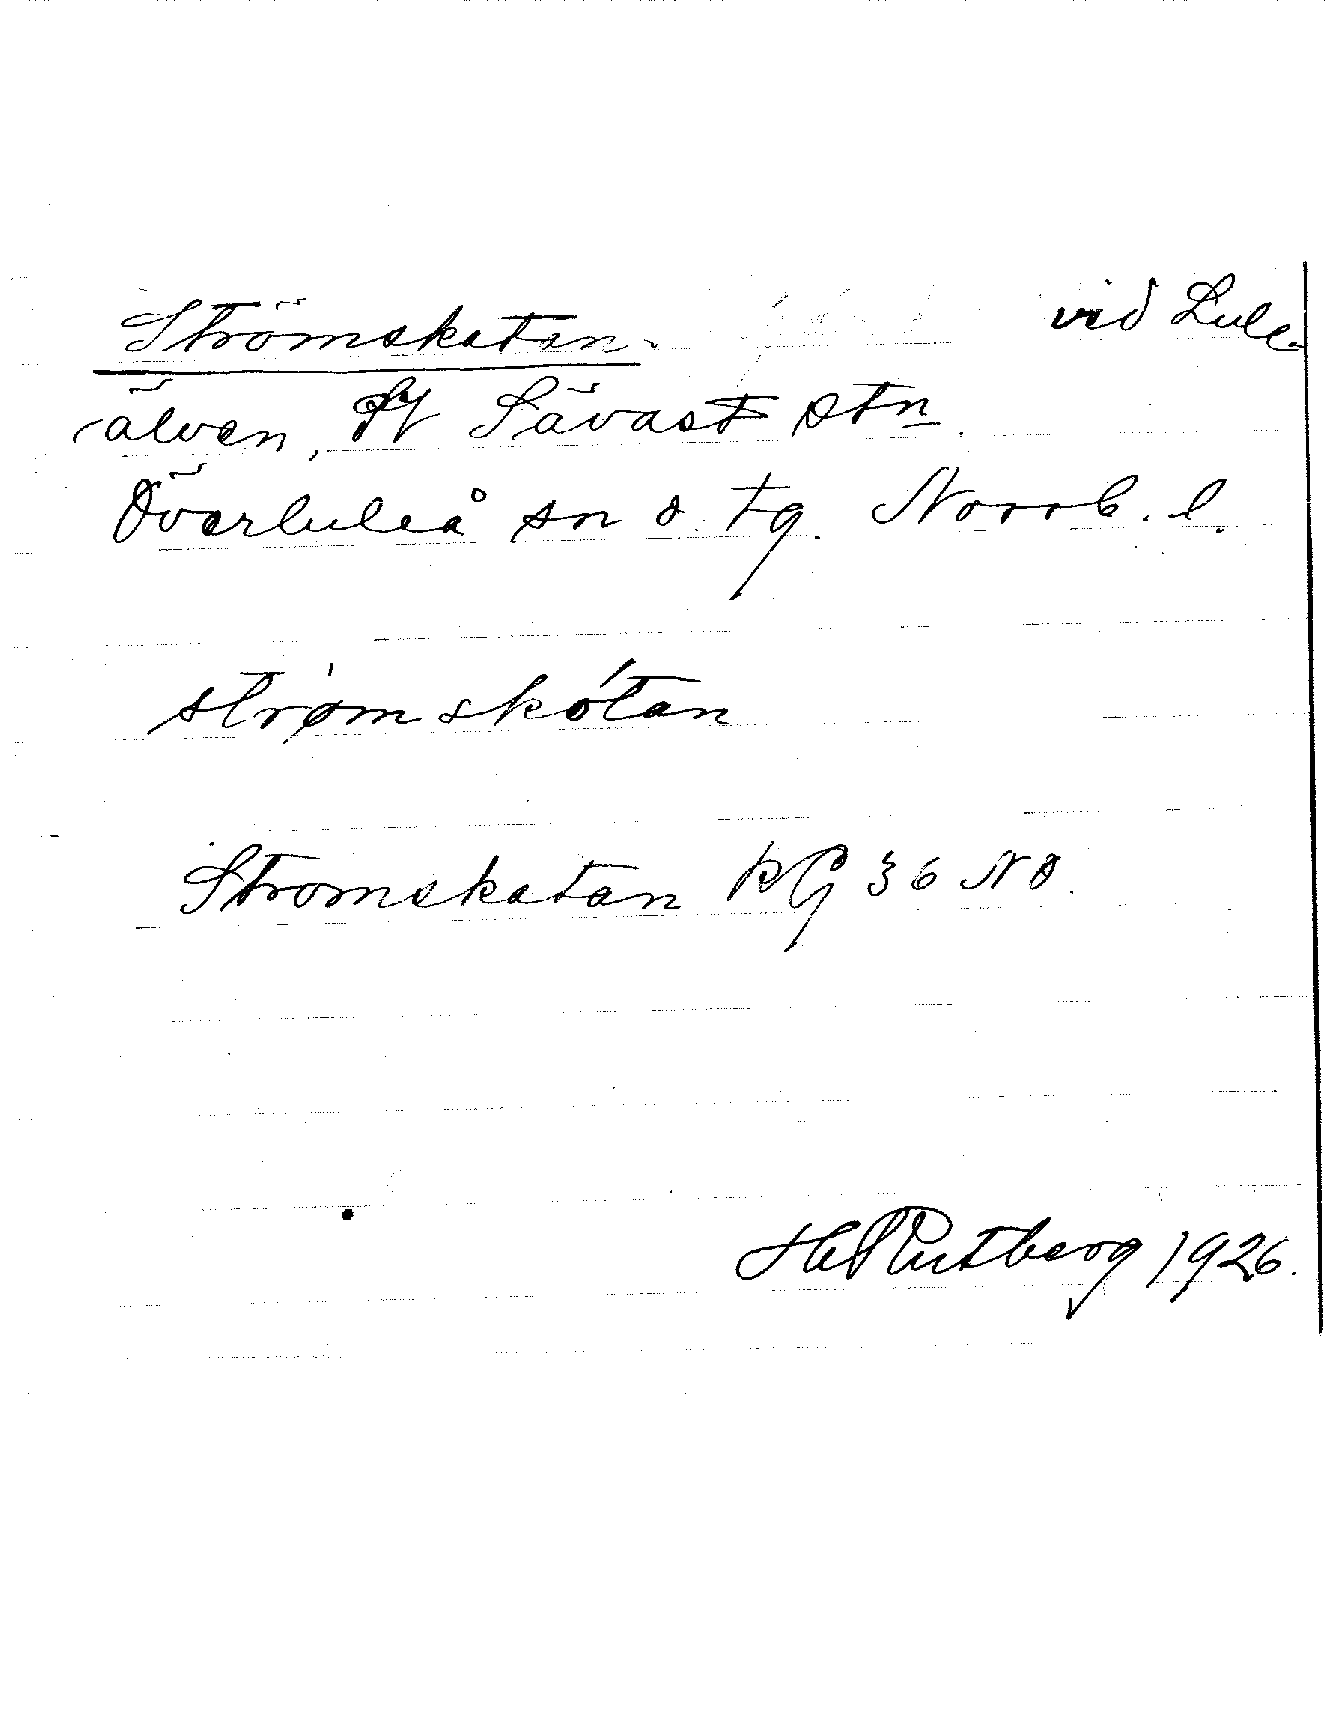 Strömskatan. vid Lule
älven, Sävast stn.
Överluleå sn o. tg. Norrb. l.
strømskótan
Strömskatan KG 36 NO.
H Rutberg 1926.